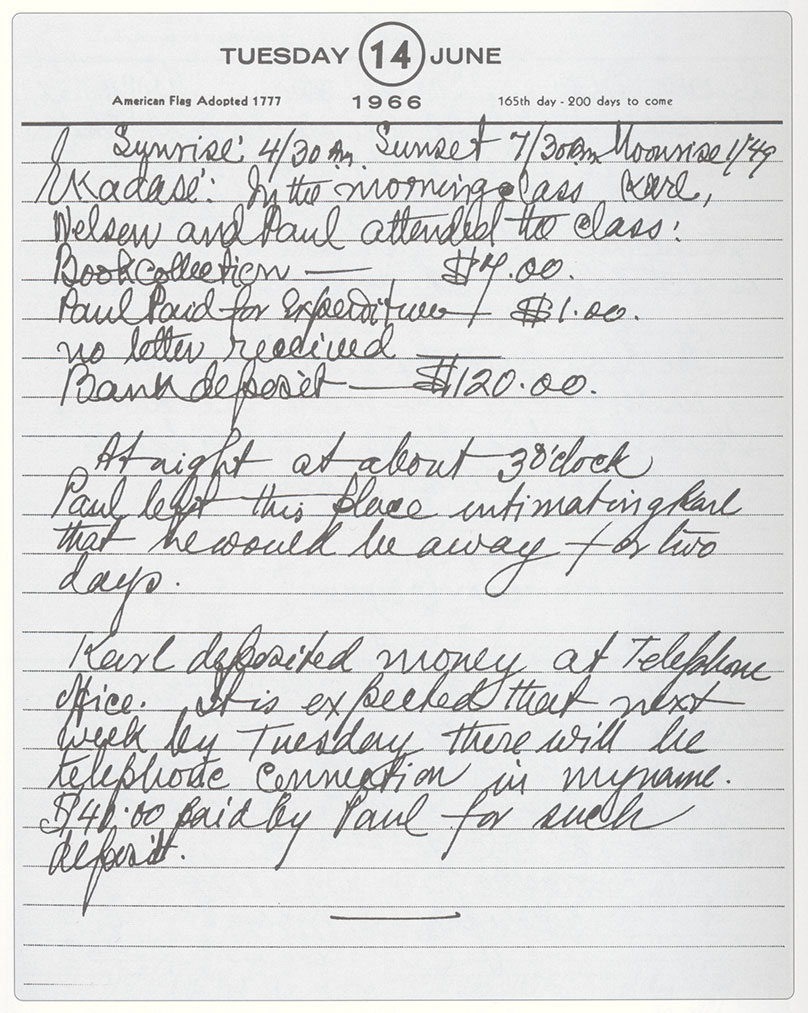 TUESDAY 14 JUNE
American Flag Adopted 1777 1966 165th day - 200 days to come
Sunrise: 4/30 am Sunset 7/30 pm Moonrise 1/49
Ekadasi: In the morning class Karl,
Nelson and Paul attended the class:
Book collection — $4.00.
Paul Paid for Expenditure + $1.00.
no letter received —
Bank deposit — $120.00.
At night at about 3 O'clock
Paul left this place intimating Karl
that he would be away for two
days.
Karl deposited money at Telephone
office. It is expected that next
week by Tuesday there will be
telephone connection in my name.
$40.00 paid by Paul for such
deposit.